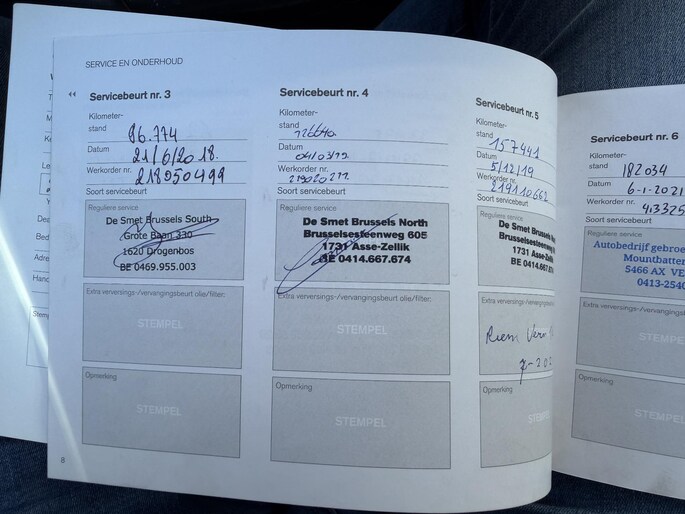 SERVICE EN ONDERHOUD
Servicebeurt nr. 3
Kilometer-
stand 86.774
Datum 21/6/2018.
Werkorder nr. 218050499
Soort servicebeurt
Reguliere service
De Smet Brussels South
Grote Baan 330
1620 Drogenbos
BE 0469.955.003
Extra verversings-/vervangingsbeurt olie/filter:
STEMPEL
Opmerking
STEMPEL
8
Servicebeurt nr. 4
Kilometer-
stand 126640
Datum 04/03/19
Werkorder nr.
Soort servicebeurt
Reguliere service
De Smet Brussels North
Brusselsesteenweg 605
1731 Asse-Zellik
BE 0414.667.674
Extra verversings-/vervangingsbeurt olie/filter:
STEMPEL
Opmerking
STEMPEL
Servicebeurt nr. 5
Kilometer-
stand 157441
Datum 5/12/19
Werkorder nr. 219110662
Soort servicebeurt
Reguliere service
De Smet Brussels N
Brusselsesteenweg
1731 Asse-Z
BE 0414.67
Extra verversings-/vervangingsbeurt
Riem
Opmerking
STEMP
Servicebeurt nr. 6
Kilometer-
stand 182034
Datum 6-1-2021
Werkorder nr. 413325
Soort servicebeurt
Reguliere service
Autobedrijf gebroe
Mountbatten
5466 AX VE
0413-2540
Extra verversings-/vervangings
STEMPEL
Opmerking
STEMPEL